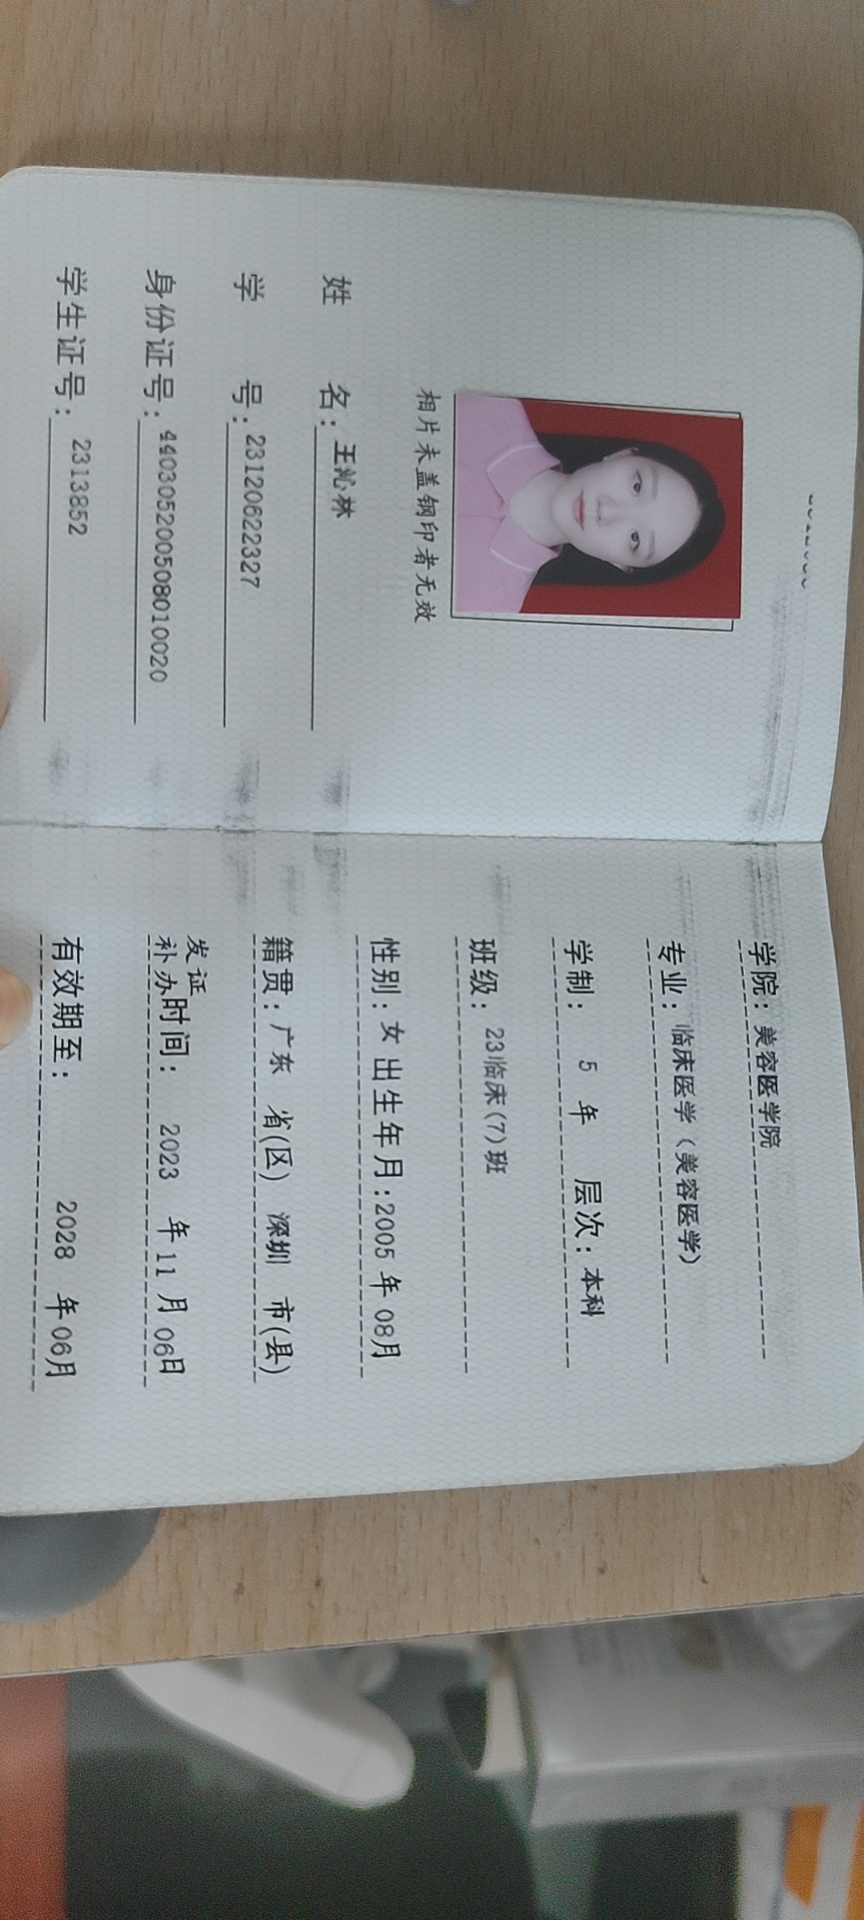 相片未盖钢印者无效
姓 名：王沁林
学 号：23120622327
身份证号：440305200508010020
学生证号：2313852
学院：美容医学院
专业：临床医学（美容医学）
学制： 5 年 层次：本科
班级：23临床(7)班
性别：女 出生年月：2005 年 08月
籍贯：广东 省(区) 深圳 市(县)
发证
补办时间： 2023 年 11 月 06日
有效期至： 2028 年 06月